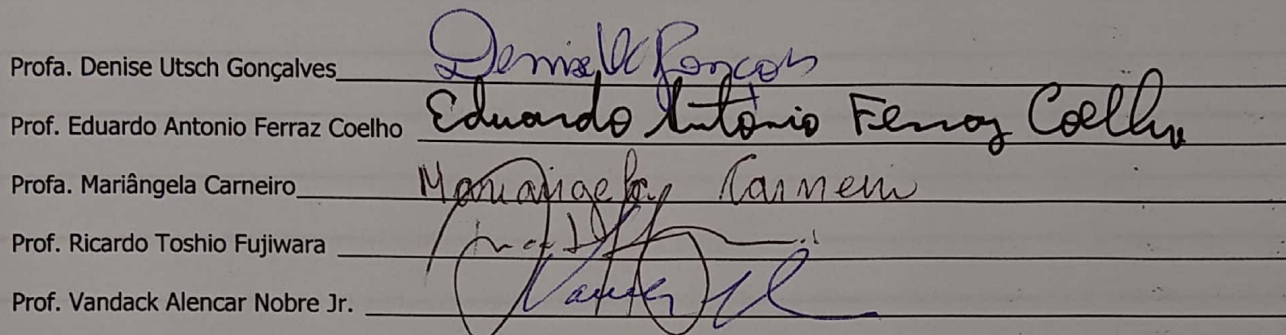 Profa. Denise Utsch Gonçalves Denise
Prof. Eduardo Antonio Ferraz Coelho Eduardo Antônio Ferraz Coelho
Profa. Mariângela Carneiro Mariângela Carneiro
Prof. Ricardo Toshio Fujiwara
Prof. Vandack Alencar Nobre Jr.